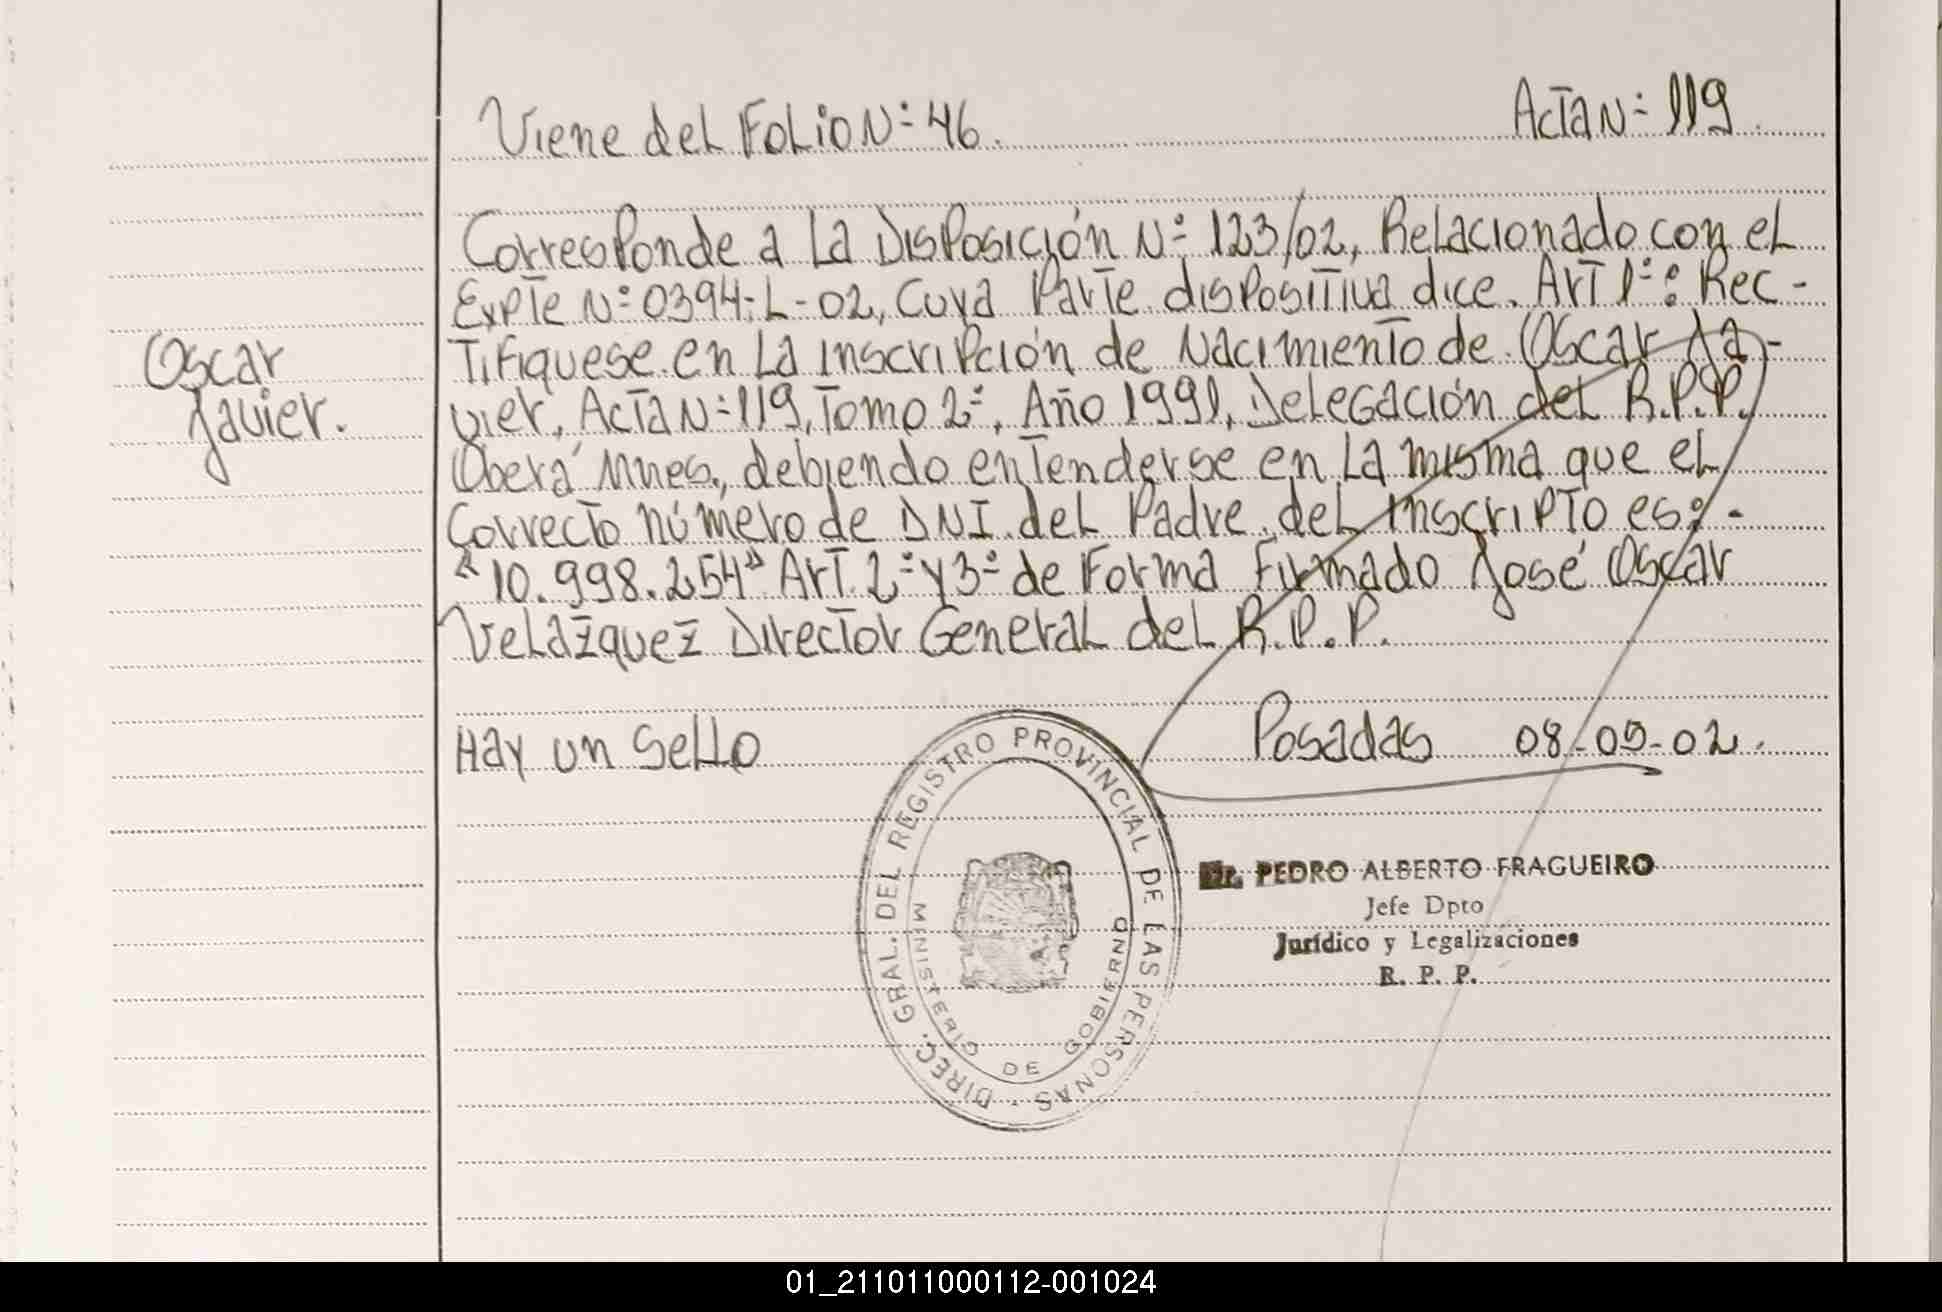 Viene del Folio Nº 46. Acta Nº 119
Corresponde a la Disposición Nº 123/02, Relacionado con el
Expte Nº 0394-L-02, Cuya Parte dispositiva dice. Art 1º: Rec-
Oscar
Javier.
tifiquese en la inscripción de Nacimiento de Oscar Ja-
vier, Acta Nº 119, Tomo 2º, Año 1991, Delegación del R.P.P.
Oberá Mnes., debiendo entenderse en la misma que el
Correcto número de DNI del Padre del inscripto es: -
"10.998.254" Art. 2º y 3º de Forma Firmado José Oscar
Velázquez Director General del R.P.P.
Hay un Sello Posadas 08-05-02.
DIREC. GRAL. DEL REGISTRO PROVINCIAL DE LAS PERSONAS
MINISTERIO DE GOBIERNO
PEDRO ALBERTO FRAGUEIRO
Jefe Dpto
Jurídico y Legalizaciones
R. P. P.
01_211011000112-001024